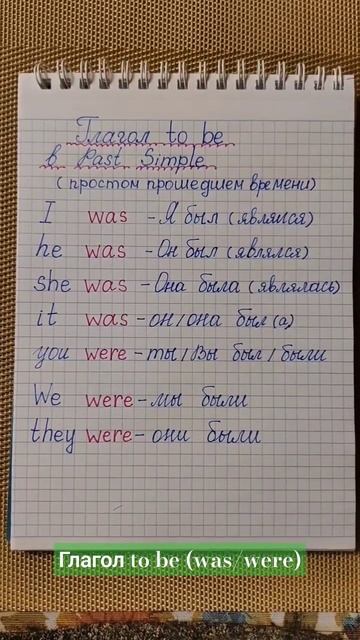 Глагол to be
в Past Simple
(простом прошедшем времени)
I was - Я был (являлся)
he was - Он был (являлся)
she was - Она была (являлась)
it was - он/она был(а)
you were - ты/Вы был/были
We were - мы были
they were - они были
Глагол to be (was/were)